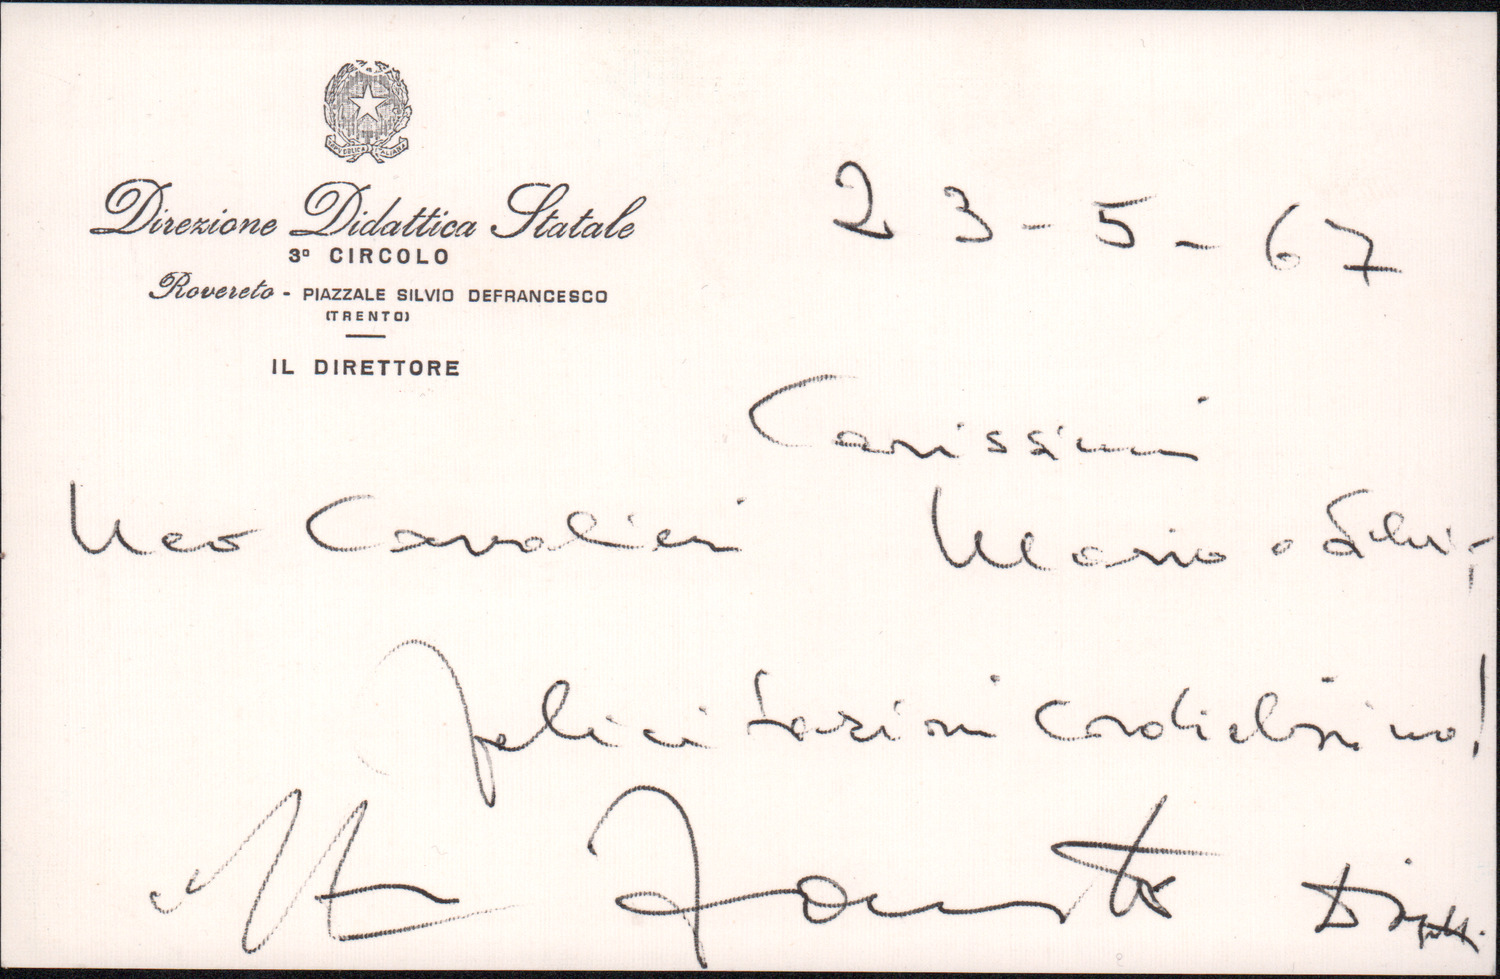 REPUBBLICA ITALIANA
Direzione Didattica Statale
3º CIRCOLO
Rovereto - PIAZZALE SILVIO DEFRANCESCO
(TRENTO)
IL DIRETTORE
23-5-67
Carissimi
Neo Cavalieri Mario e
felicitazioni cordialissime!